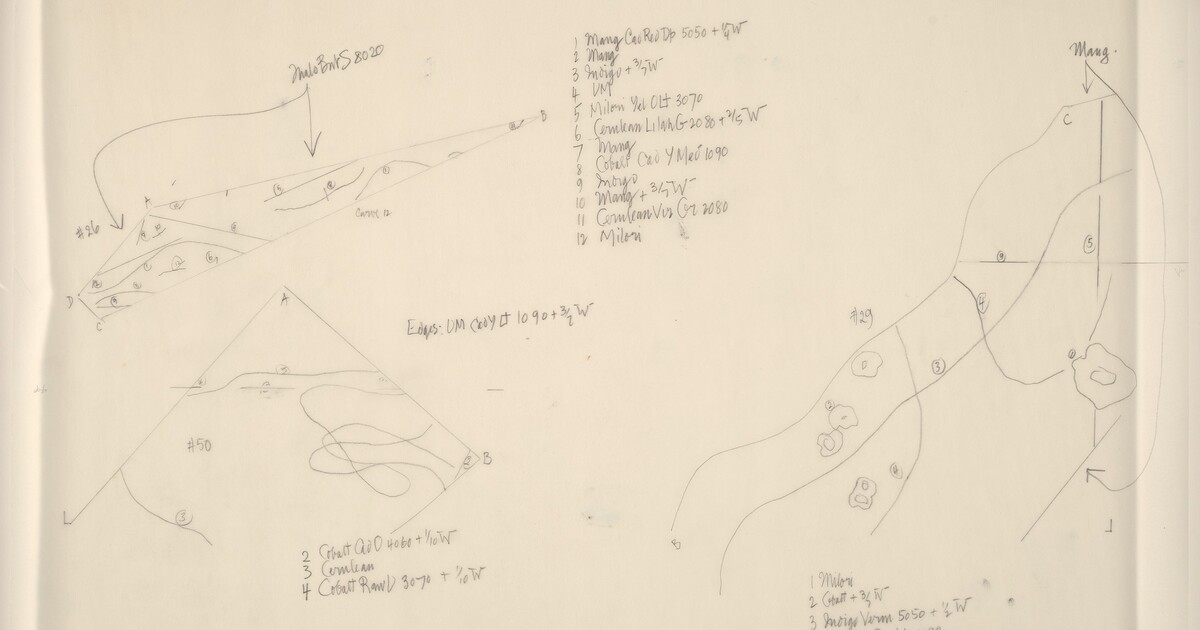 MaloBntS 8020
A
B
#26
D
C
Curve 12
1 Mang CadRedDp 5050 + 1/4 W
2 Mang
3 Indigo + 3/7 W
4 UM
5 Milori Yel OLt 3070
6 Cerulean LilahG 2080 + 2/5 W
7 Mang
8 Cobalt Cad Y Med 1090
9 Indigo
10 Mang + 3/7 W
11 Cerulean Vir Gr 2080
12 Milori
Mang.
C
9
5
4
#29
3
6
2
4
B
Edges: UM CadY Lt 1090 +
A
3
#50
2
B
L
3
2 Cobalt CadO 4060 + 1/10 W
3 Cerulean
4 Cobalt RawU 3070 + 1/10 W
1 Milori
2 Cobalt + 3/5 W
3 Indigo Verm 5050 + 1/2 W